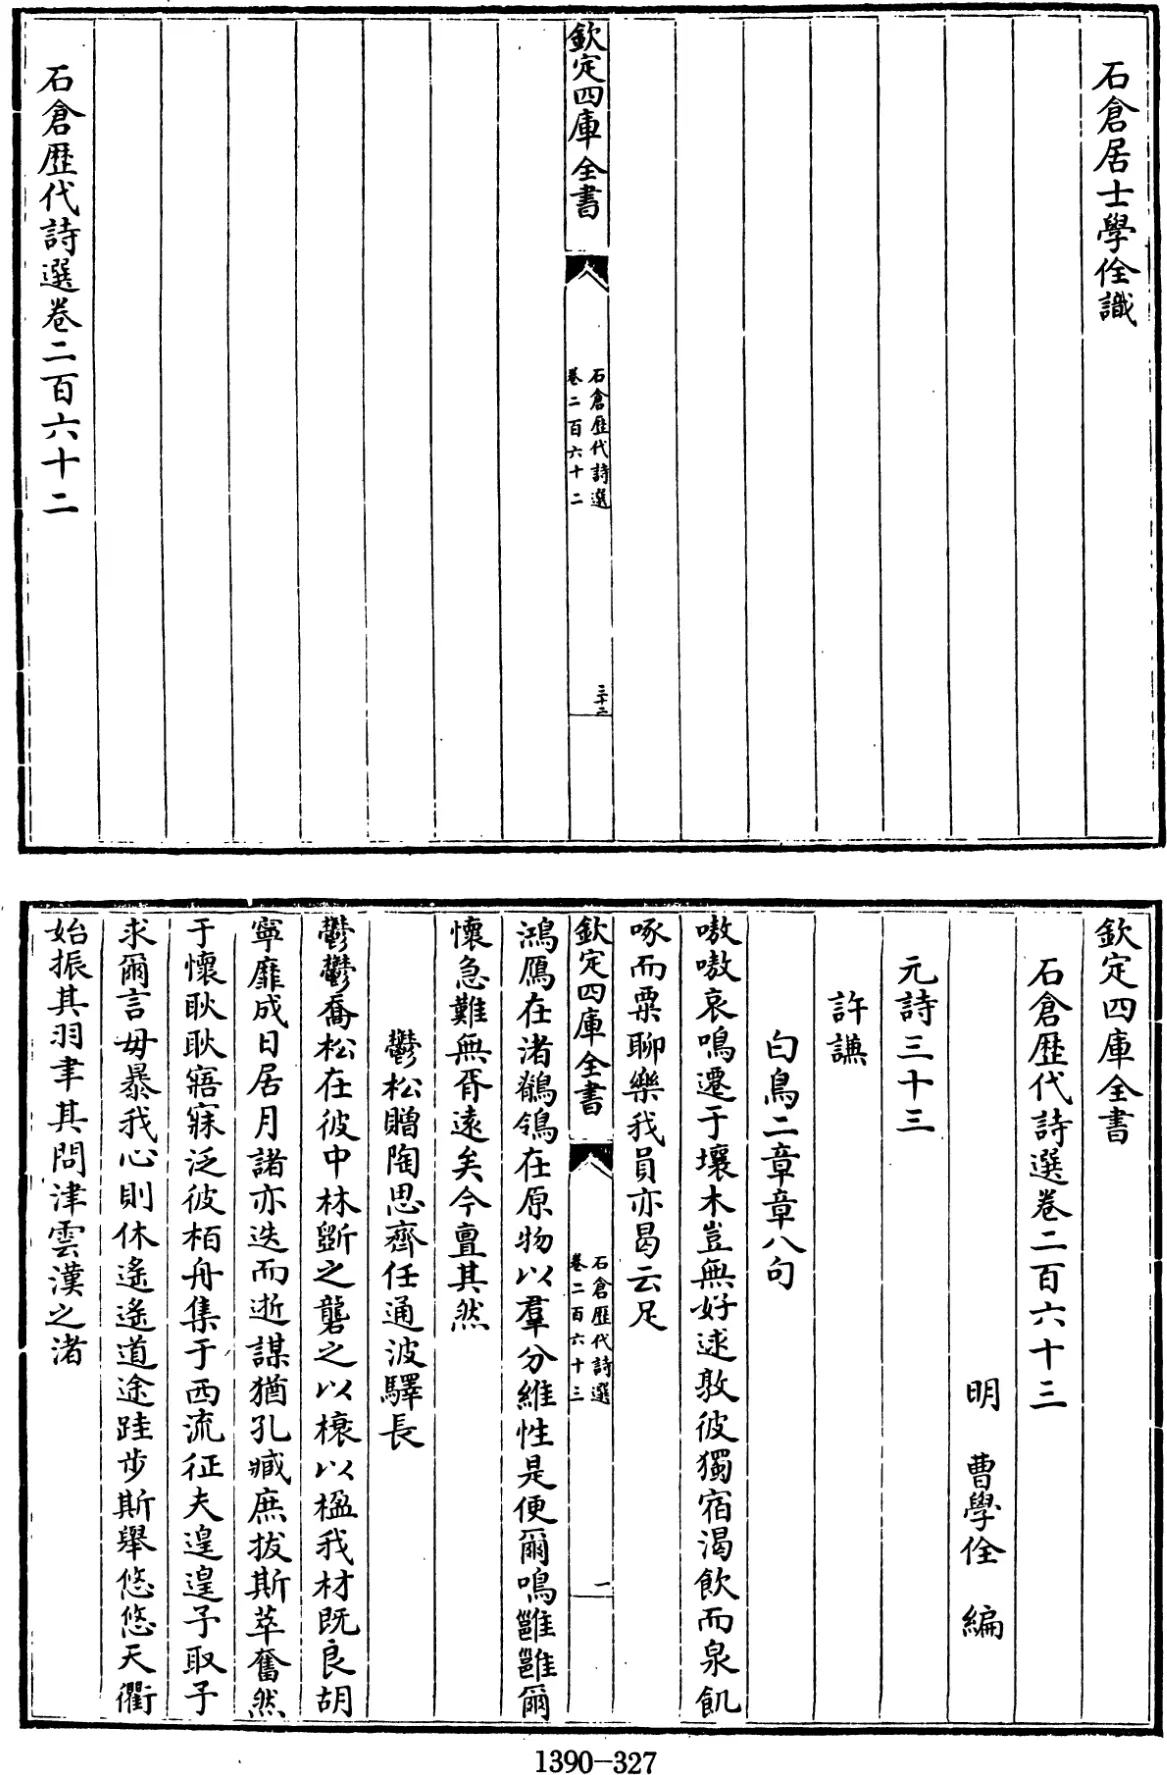 石倉居士學佺識
欽定四庫全書
石倉歷代詩選
卷二百六十二
三十二
石倉歷代詩選卷二百六十二
欽定四庫全書
石倉歷代詩選卷二百六十三
明 曹學佺 編
元詩三十三
許謙
白鳥二章章八句
嗷嗷哀鳴遷于壤木豈無好逑敦彼獨宿渴飲而泉飢
啄而粟聊樂我員亦曷云足
欽定四庫全書
石倉歷代詩選
卷二百六十三
一
鴻鴈在渚鶺鴒在原物以羣分維性是便爾鳴雝雝爾
懷急難無胥遠矣今亶其然
鬱松贈陶思齊任通波驛長
鬱鬱喬松在彼中林斵之礱之以榱以楹我材既良胡
寧靡成日居月諸亦迭而逝謀猶孔臧庶拔斯萃奮然
于懷耿耿寤寐泛彼栢舟集于西流征夫遑遑予取予
求爾言毋暴我心則休遙遙道途跬步斯舉悠悠天衢
始振其羽聿其問津雲漢之渚
1390-327